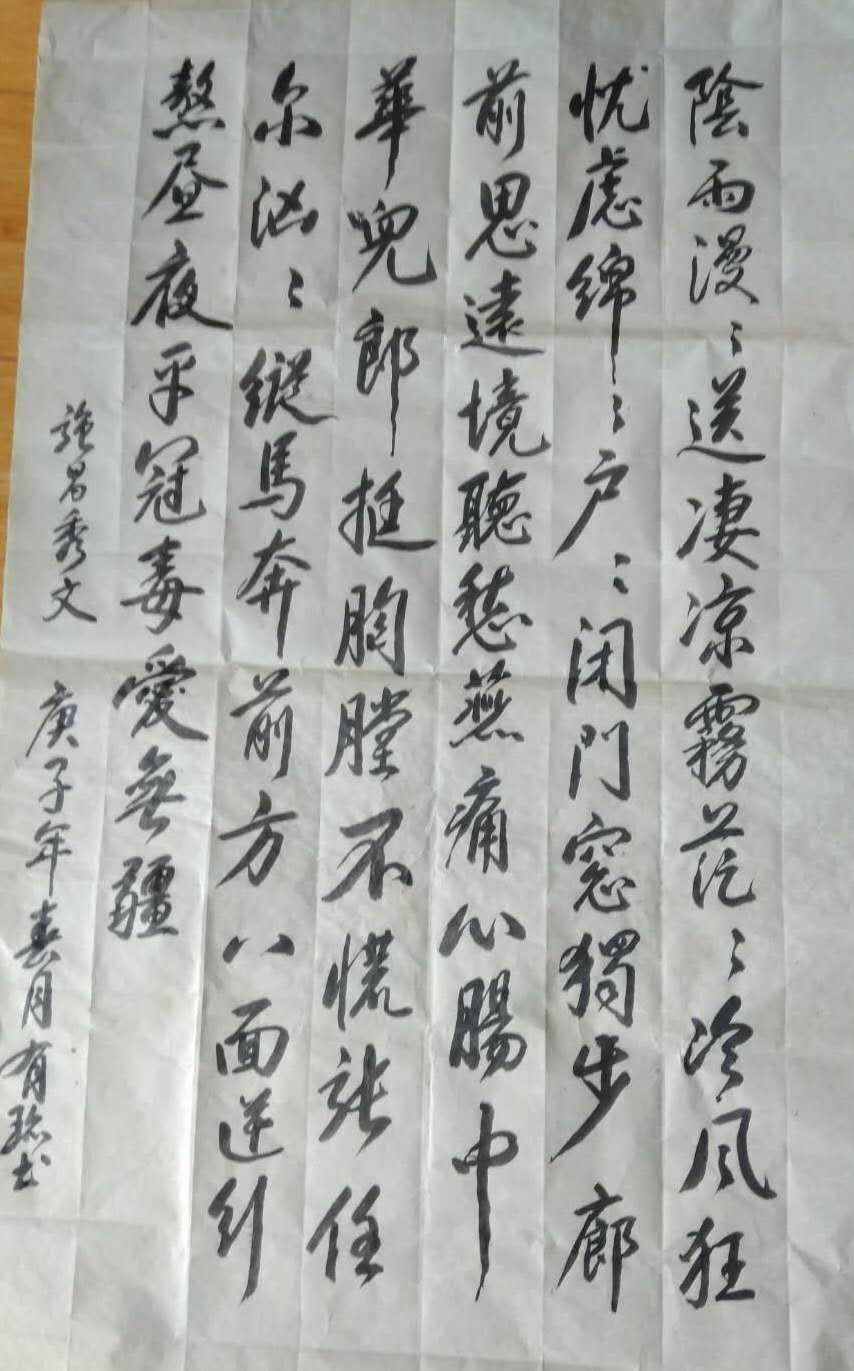 陰雨漫〻送凄凉霧茫〻冷风狂
忧慮綿〻户〻闭門窓獨步廊
前思遠境聽愁燕痛心腸中
華兒郎挺胸膛不慌张任
尔汹〻縱馬奔前方八面逆行
熬昼夜平冠毒愛無疆
秀文 庚子年春月有书